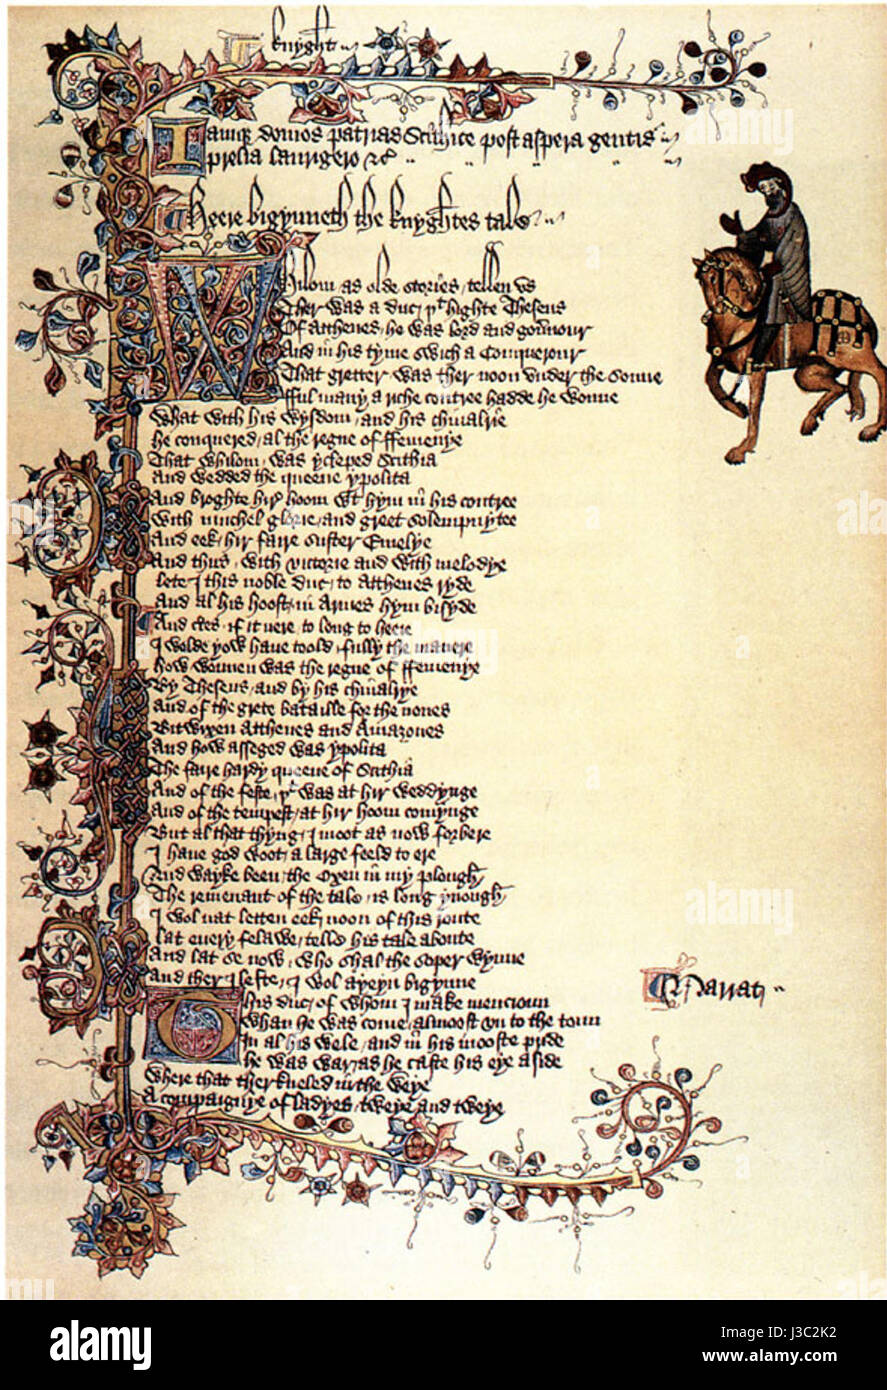 knyght
Iamque domos patrias Scithice post aspera gentis
prelia laurigero &c
Heere bigynneth the knyghtes tale
Whilom, as olde stories, tellen us
Ther was a duc, þt highte Theseus
Of Atthenes, he was lord and gouernour
And in his tyme swich a Conquerour
That gretter was ther noon vnder the sonne
fful many a riche contree hadde he wonne
What with his wysdom, and his chiualrie
he conquered, al the regne of ffemenye
That whilom, was ycleped Scithia
And wedded the queene ypolita
And broghte hir hoom wt hym in his contree
With muchel glorie, and greet solempnytee
And eek, hir faire suster Emelye
And thus, with victorie and with melodye
lete I this noble duc, to Atthenes ryde
And al his hoost, in Armes hym bisyde
And certes, if it nere, to long to heere
I wolde yow haue toold, fully the manere
how wonnen was the regne of ffemenye
By Theseus, and by his chiualrye
And of the grete bataille for the nones
Bitwixen Atthenes and Amazones
And how asseged was ypolita
The faire hardy queene of Scithia
And of the feste, þt was at hir weddynge
And of the tempest, at hir hoom comynge
But al that thyng, I moot as now forbere
I haue god woot, a large feeld to ere
And wayke been, the Oxen in my plough
The remenant of the tale, is long ynough
I wol nat letten eek, noon of this route
lat euery felawe, telle his tale aboute
And lat se now, who shal the soper wynne
And ther I lefte, I wol ayeyn bigynne
Narrat
This duc, of whom I make mencioun
Whan he was come, almoost vn to the toun
In al his wele, and in his mooste pride
he was war, as he caste his eye aside
Where that ther kneled in the weye
A compaignye of ladyes, tweye and tweye
alamy
alamy stock photo
J3C2K2
www.alamy.com